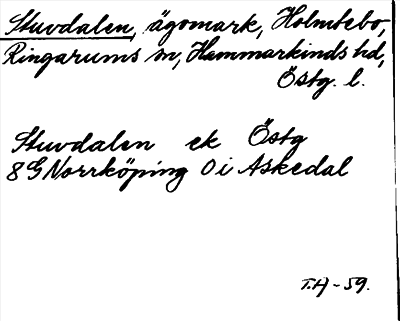 Stuvdalen, ägomark, Holmtebo,
Ringarums sn, Hammarkinds hd,
Östg. l.
Stuvdalen ek Östg
8G Norrköping 0i Askedal
T.H-59.